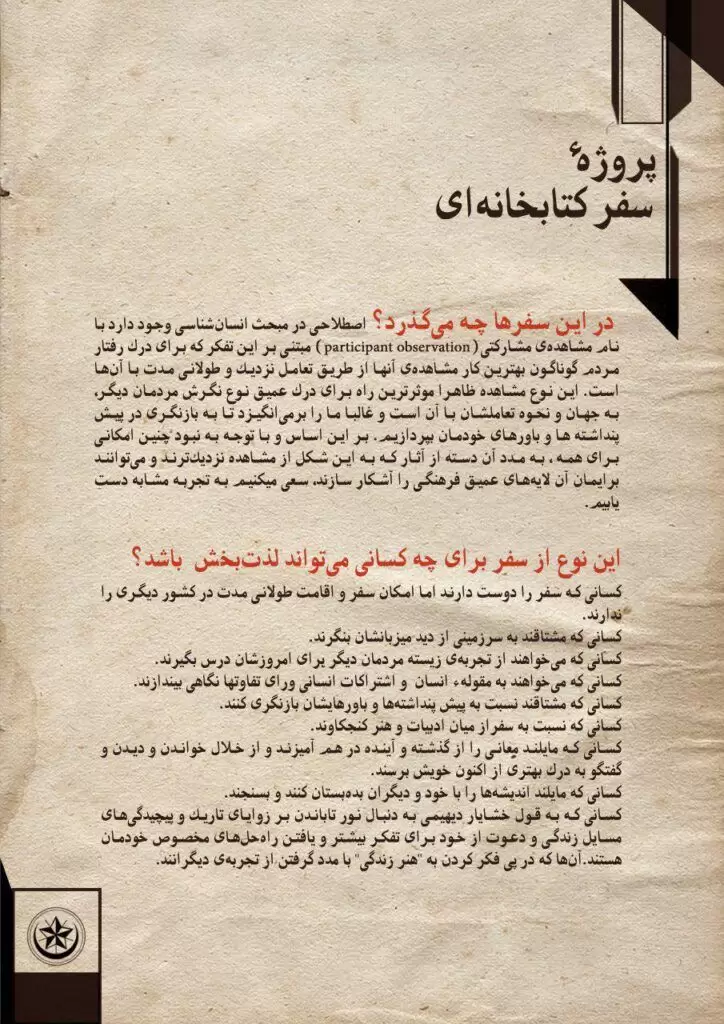 پروژهٔ
سفر کتابخانه‌ای
در این سفرها چه می‌گذرد؟ اصطلاحی در مبحث انسان‌شناسی وجود دارد با
نام مشاهده‌ی مشارکتی( participant observation ) مبتنی بر این تفکر که برای درك رفتار
مردم گوناگون بهترین کار مشاهده‌ی آنها از طریق تعامل نزدیك و طولانی مدت با آن‌ها
است. این نوع مشاهده ظاهرا موثرترین راه برای درك عمیق نوع نگرش مردمان دیگر،
به جهان و نحوه تعاملشان با آن است و غالبا ما را برمی‌انگیزد تا به بازنگری در پیش
پنداشته ها و باورهای خودمان بپردازیم. بر این اساس و با توجه به نبود چنین امکانی
برای همه ، به مدد آن دسته از آثار که به این شکل از مشاهده نزدیك‌ترند و می‌توانند
برایمان آن لایه‌های عمیق فرهنگی را آشکار سازند، سعی میکنیم به تجربه مشابه دست
یابیم.
این نوع از سفر برای چه کسانی می‌تواند لذت‌بخش باشد؟
کسانی که سفر را دوست دارند اما امکان سفر و اقامت طولانی مدت در کشور دیگری را
ندارند.
کسانی که مشتاقند به سرزمینی از دید میزبانشان بنگرند.
کسانی که می‌خواهند از تجربه‌ی زیسته مردمان دیگر برای امروزشان درس بگیرند.
کسانی که می‌خواهند به مقوله‌ء انسان و اشتراکات انسانی ورای تفاوتها نگاهی بیندازند.
کسانی که مشتاقند نسبت به پیش پنداشته‌ها و باورهایشان بازنگری کنند.
کسانی که نسبت به سفر از میان ادبیات و هنر کنجکاوند.
کسانی که مایلند معانی را از گذشته و آینده در هم آمیزند و از خلال خواندن و دیدن و
گفتگو به درك بهتری از اکنون خویش برسند.
کسانی که مایلند اندیشه‌ها را با خود و دیگران بده‌بستان کنند و بسنجند.
کسانی که به قول خشایار دیهیمی به دنبال نور تاباندن بر زوایای تاریك و پیچیدگی‌های
مسایل زندگی و دعوت از خود برای تفکر بیشتر و یافتن راه‌حل‌های مخصوص خودمان
هستند.آن‌ها که در پی فکر کردن به "هنر زندگی" با مدد گرفتن از تجربه‌ی دیگرانند.